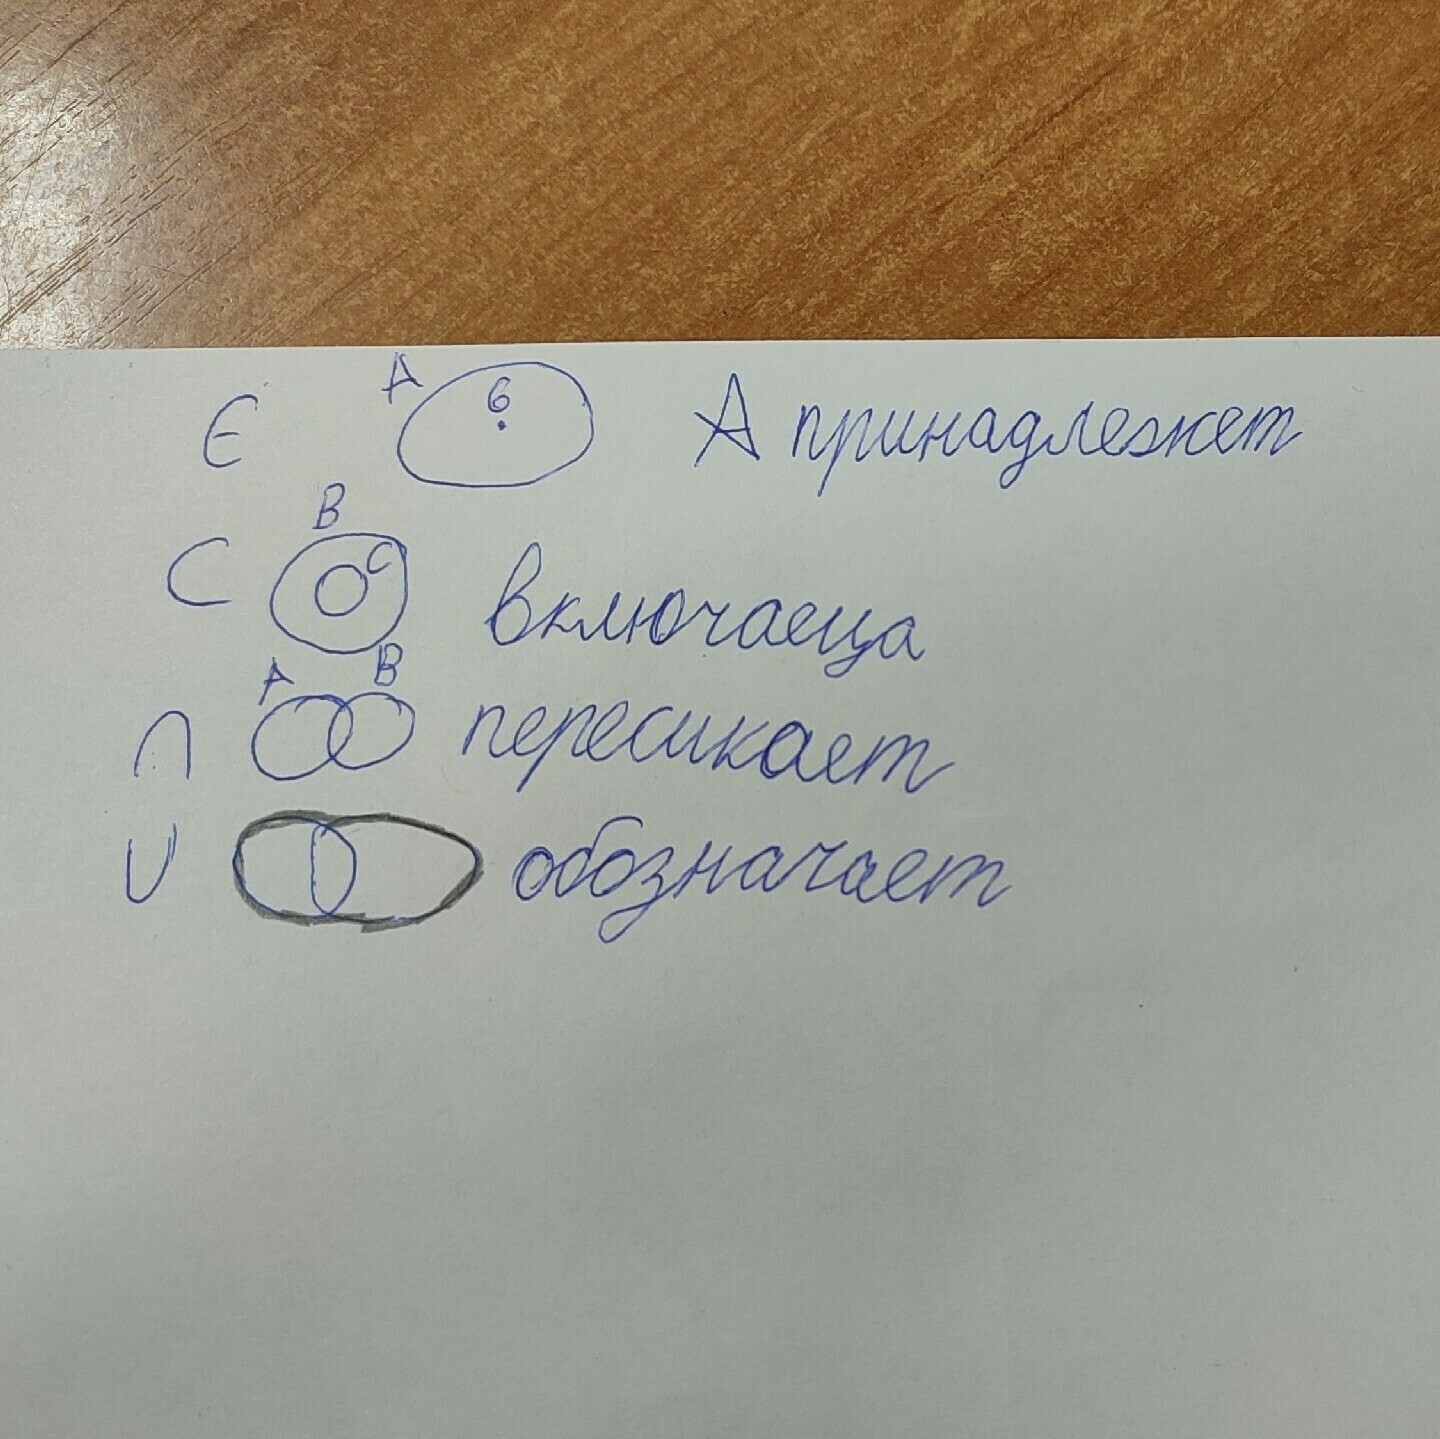 ∈ A 6 А принадлежет
⊂ B C включаеца
∩ A B пересикает
∪ обозначает